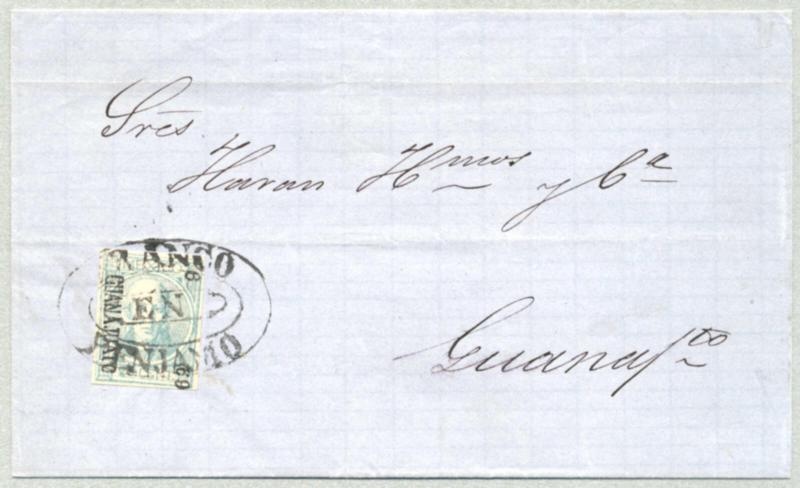 Sres
Haran Hmos y Ca
Guanajto
FRANCO
EN
PENJAMO
GUANAJUATO
6
69